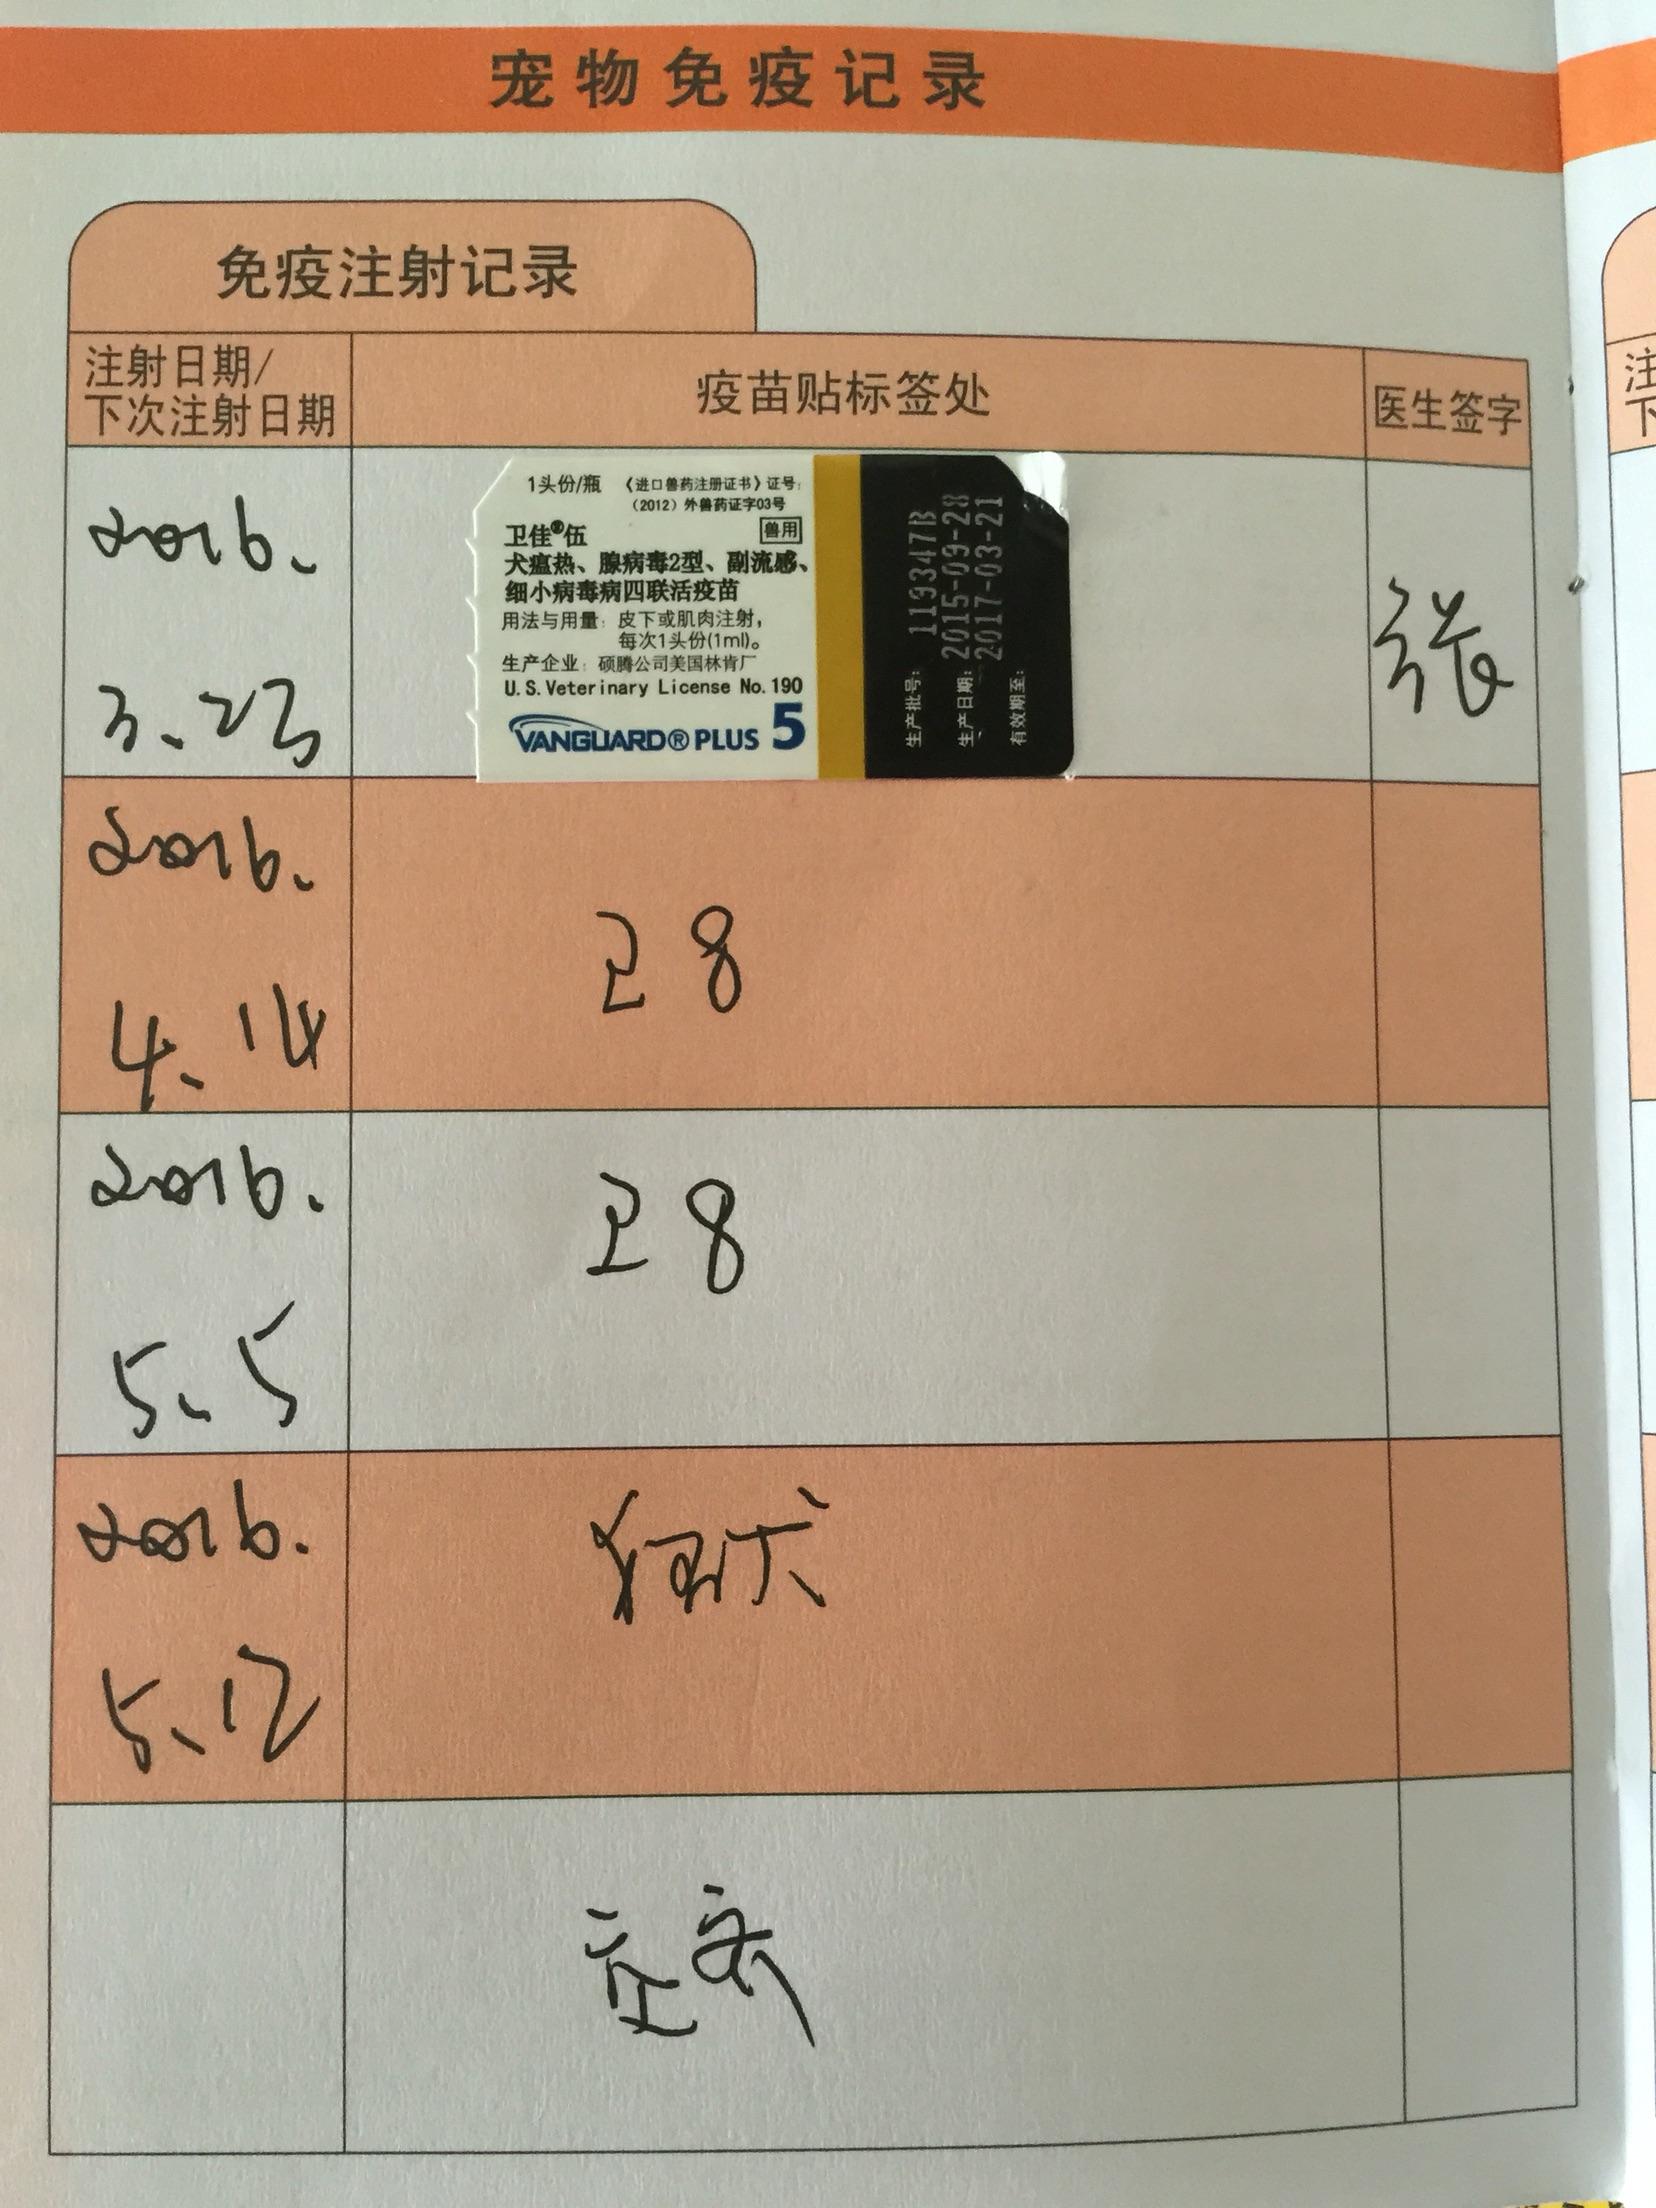 宠物免疫记录
免疫注射记录
注射日期/
下次注射日期
疫苗贴标签处
医生签字
2016.
3.23
1头份/瓶 《进口兽药注册证书》证号:
(2012)外兽药证字03号
卫佳®伍 兽用
犬瘟热、腺病毒2型、副流感、
细小病毒病四联活疫苗
用法与用量:皮下或肌肉注射,
每次1头份(1ml)。
生产企业:硕腾公司美国林肯厂
U.S. Veterinary License No. 190
VANGUARD® PLUS 5
生产批号: 119347B
生产日期: 2015-09-28
有效期至: 2017-03-21
张
2016.
4.14
卫8
2016.
5.5
卫8
2016.
5.12
狂犬
注
下